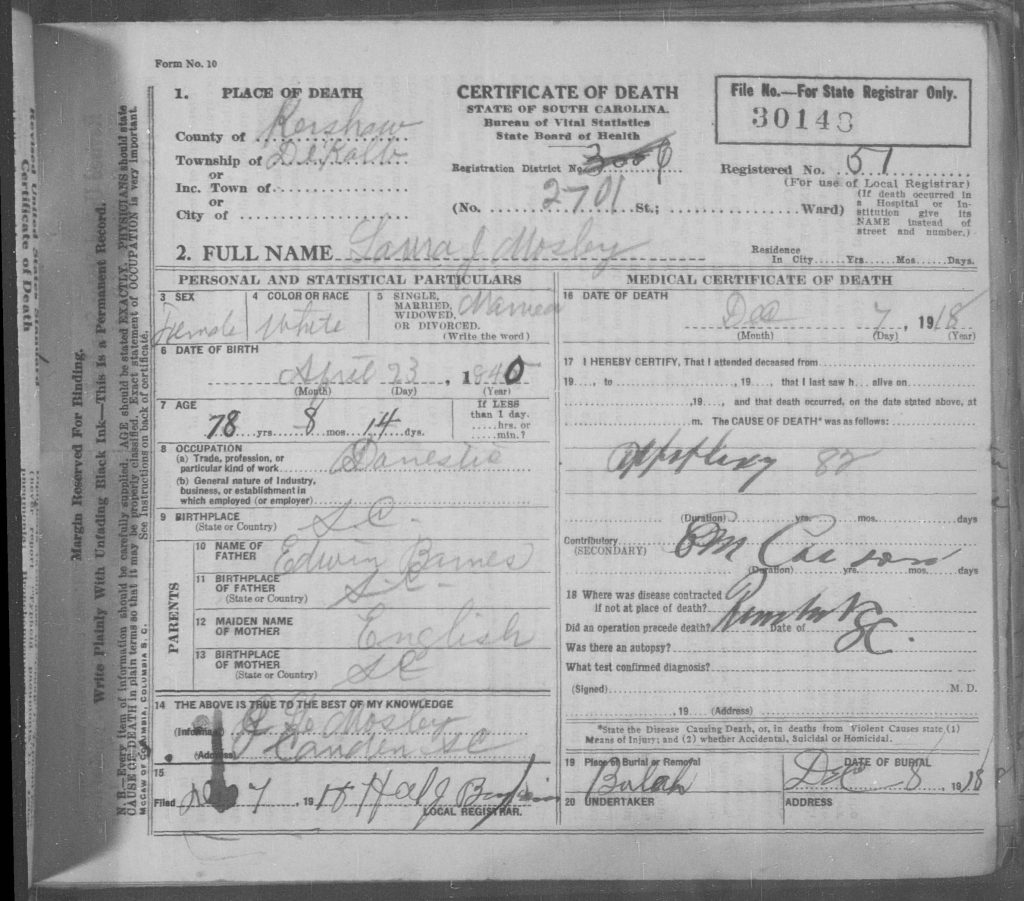 Form No. 10
1. PLACE OF DEATH
County of Kershaw
Township of DeKalb
or
Inc. Town of
or
City of
CERTIFICATE OF DEATH
STATE OF SOUTH CAROLINA.
Bureau of Vital Statistics
State Board of Health
Registration District No.
2701
(No. St.; Ward)
File No.—For State Registrar Only.
30148
Registered No. 51
(For use of Local Registrar)
(If death occurred in
a Hospital or In-
stitution give its
NAME instead of
street and number.)
2. FULL NAME Laura J Mosby
Residence
In City Yrs. Mos. Days.
PERSONAL AND STATISTICAL PARTICULARS
3 SEX
Female
4 COLOR OR RACE
White
5 SINGLE,
MARRIED,
WIDOWED,
OR DIVORCED.
(Write the word)
Married
6 DATE OF BIRTH
April 23, 1840
(Month) (Day) (Year)
7 AGE
78 yrs. 8 mos. 14 dys.
If LESS
than 1 day.
hrs. or
min.?
8 OCCUPATION
(a) Trade, profession, or
particular kind of work Domestic
(b) General nature of Industry,
business, or establishment in
which employed (or employer)
9 BIRTHPLACE
(State or Country) S.C.
PARENTS
10 NAME OF
FATHER Edwin Barnes
11 BIRTHPLACE
OF FATHER
(State or Country) S.C.
12 MAIDEN NAME
OF MOTHER English
13 BIRTHPLACE
OF MOTHER
(State or Country) SC
14 THE ABOVE IS TRUE TO THE BEST OF MY KNOWLEDGE
(Informant) Mosby
(Address) Camden SC
15
Filed 7, 1918
LOCAL REGISTRAR.
MEDICAL CERTIFICATE OF DEATH
16 DATE OF DEATH
Dec 7, 1918
(Month) (Day) (Year)
17 I HEREBY CERTIFY, That I attended deceased from
19, to, 19 that I last saw h alive on
,19, and that death occurred, on the date stated above, at
m. The CAUSE OF DEATH* was as follows:
Apoplexy 82
(Duration) yrs. mos. days
Contributory
(SECONDARY)
(Duration) yrs. mos. days
18 Where was disease contracted
if not at place of death?
Did an operation precede death? Date of
SC.
Was there an autopsy?
What test confirmed diagnosis?
(Signed) M. D.
, 19 (Address)
*State the Disease Causing Death, or, in deaths from Violent Causes state (1)
Means of Injury; and (2) whether Accidental, Suicidal or Homicidal.
19 Place of Burial or Removal
DATE OF BURIAL
Dec 8, 1918
20 UNDERTAKER
ADDRESS
Margin Reserved For Binding.
Write Plainly With Unfading Black Ink—This Is a Permanent Record.
N. B.—Every item of information should be carefully supplied. AGE should be stated EXACTLY. PHYSICIANS should state
CAUSE OF DEATH in plain terms so that it may be properly classified. Exact statement of OCCUPATION is very important.
See Instructions on back of certificate.
McCAW OF COLUMBIA, COLUMBIA S. C.
Revised United States Standard
Certificate of Death